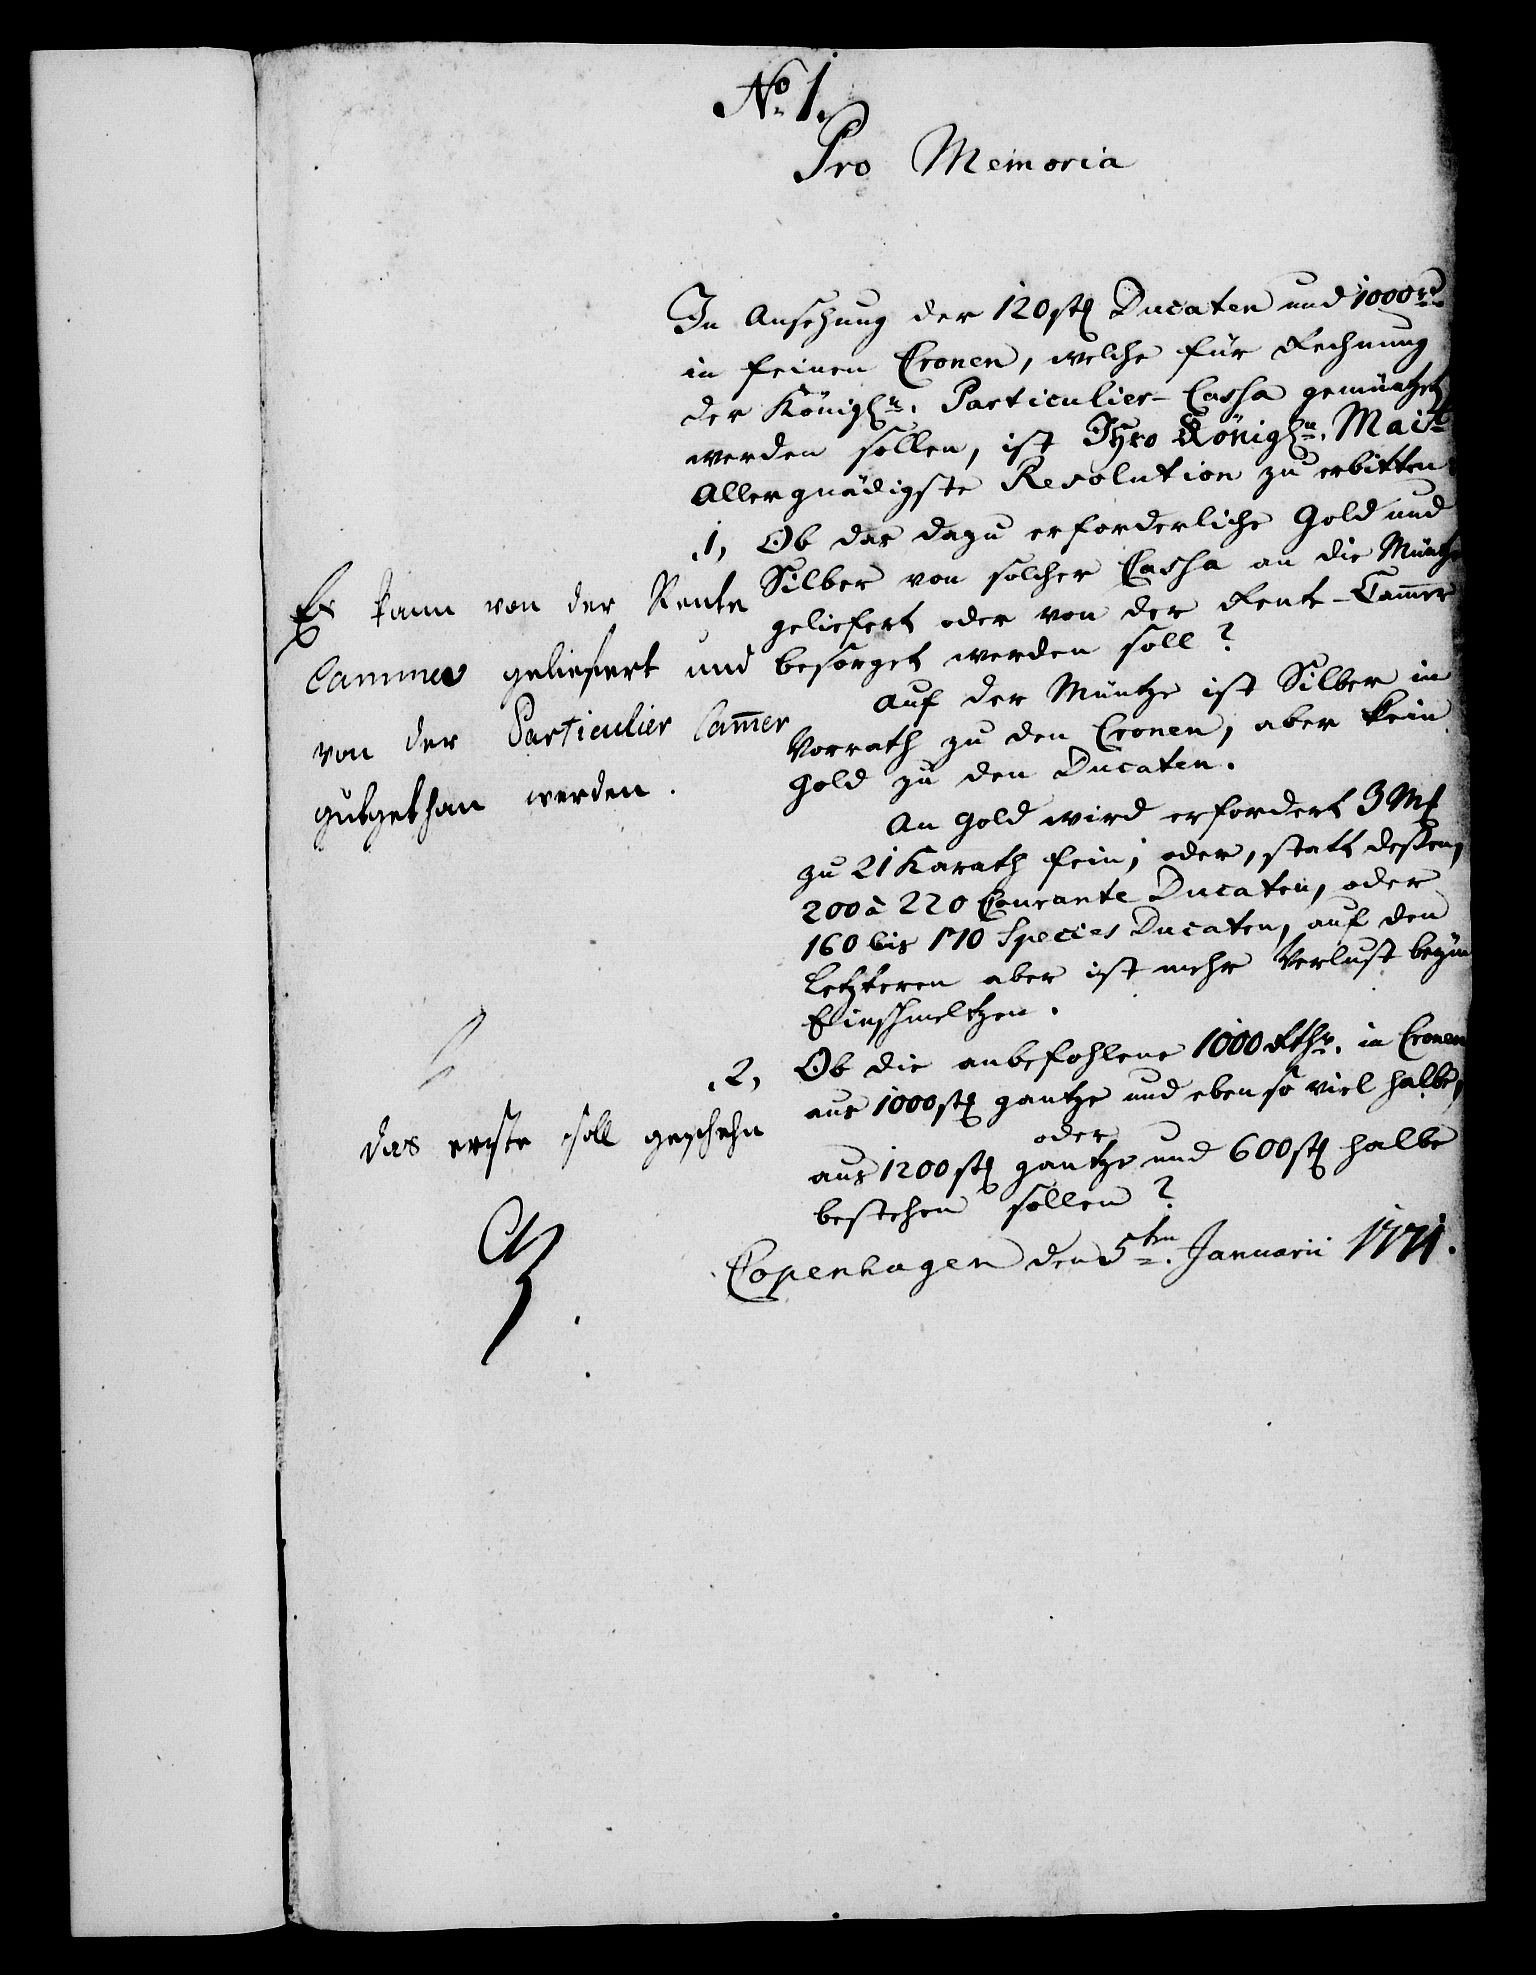 No. 1.
Pro Memoria
In Ansehung der 120 stk Ducaten und 1000 rd
in feinen Cronen, welche für Rechnung
der Königln. Particulier-Cassa gemüntzet
werden sollen, ist Ihro Königln. Mait
Allergnädigste Resolution zu erbitten
1, Ob das dazu erforderliche Gold und
Silber von solcher Cassa an die Müntze
geliefert oder von der Rent-Cam̄er
besorget werden soll?
Auf der Müntze ist Silber in
Vorrath zu den Cronen, aber kein
Gold zu den Ducaten.
An Gold wird erfordert 3 Mk
zu 21 Karath fein; oder, statt deßen,
200 à 220 Courante Ducaten, oder
160 bis 170 Species Ducaten, auf den
Letzteren aber ist mehr Verlust beym
Einschmeltzen.
2, Ob die anbefohlene 1000 Rthr. in Cronen
aus 1000 stk gantze und eben so viel halbe,
oder
aus 1200 stk gantze und 600 stk halbe
bestehen sollen?
Copenhagen den 5ten Januarii 1771.
Es kann von der Rente
Cammer geliefert und
von der Particulier Cam̄er
gutgethan werden.
das erste soll geschehn